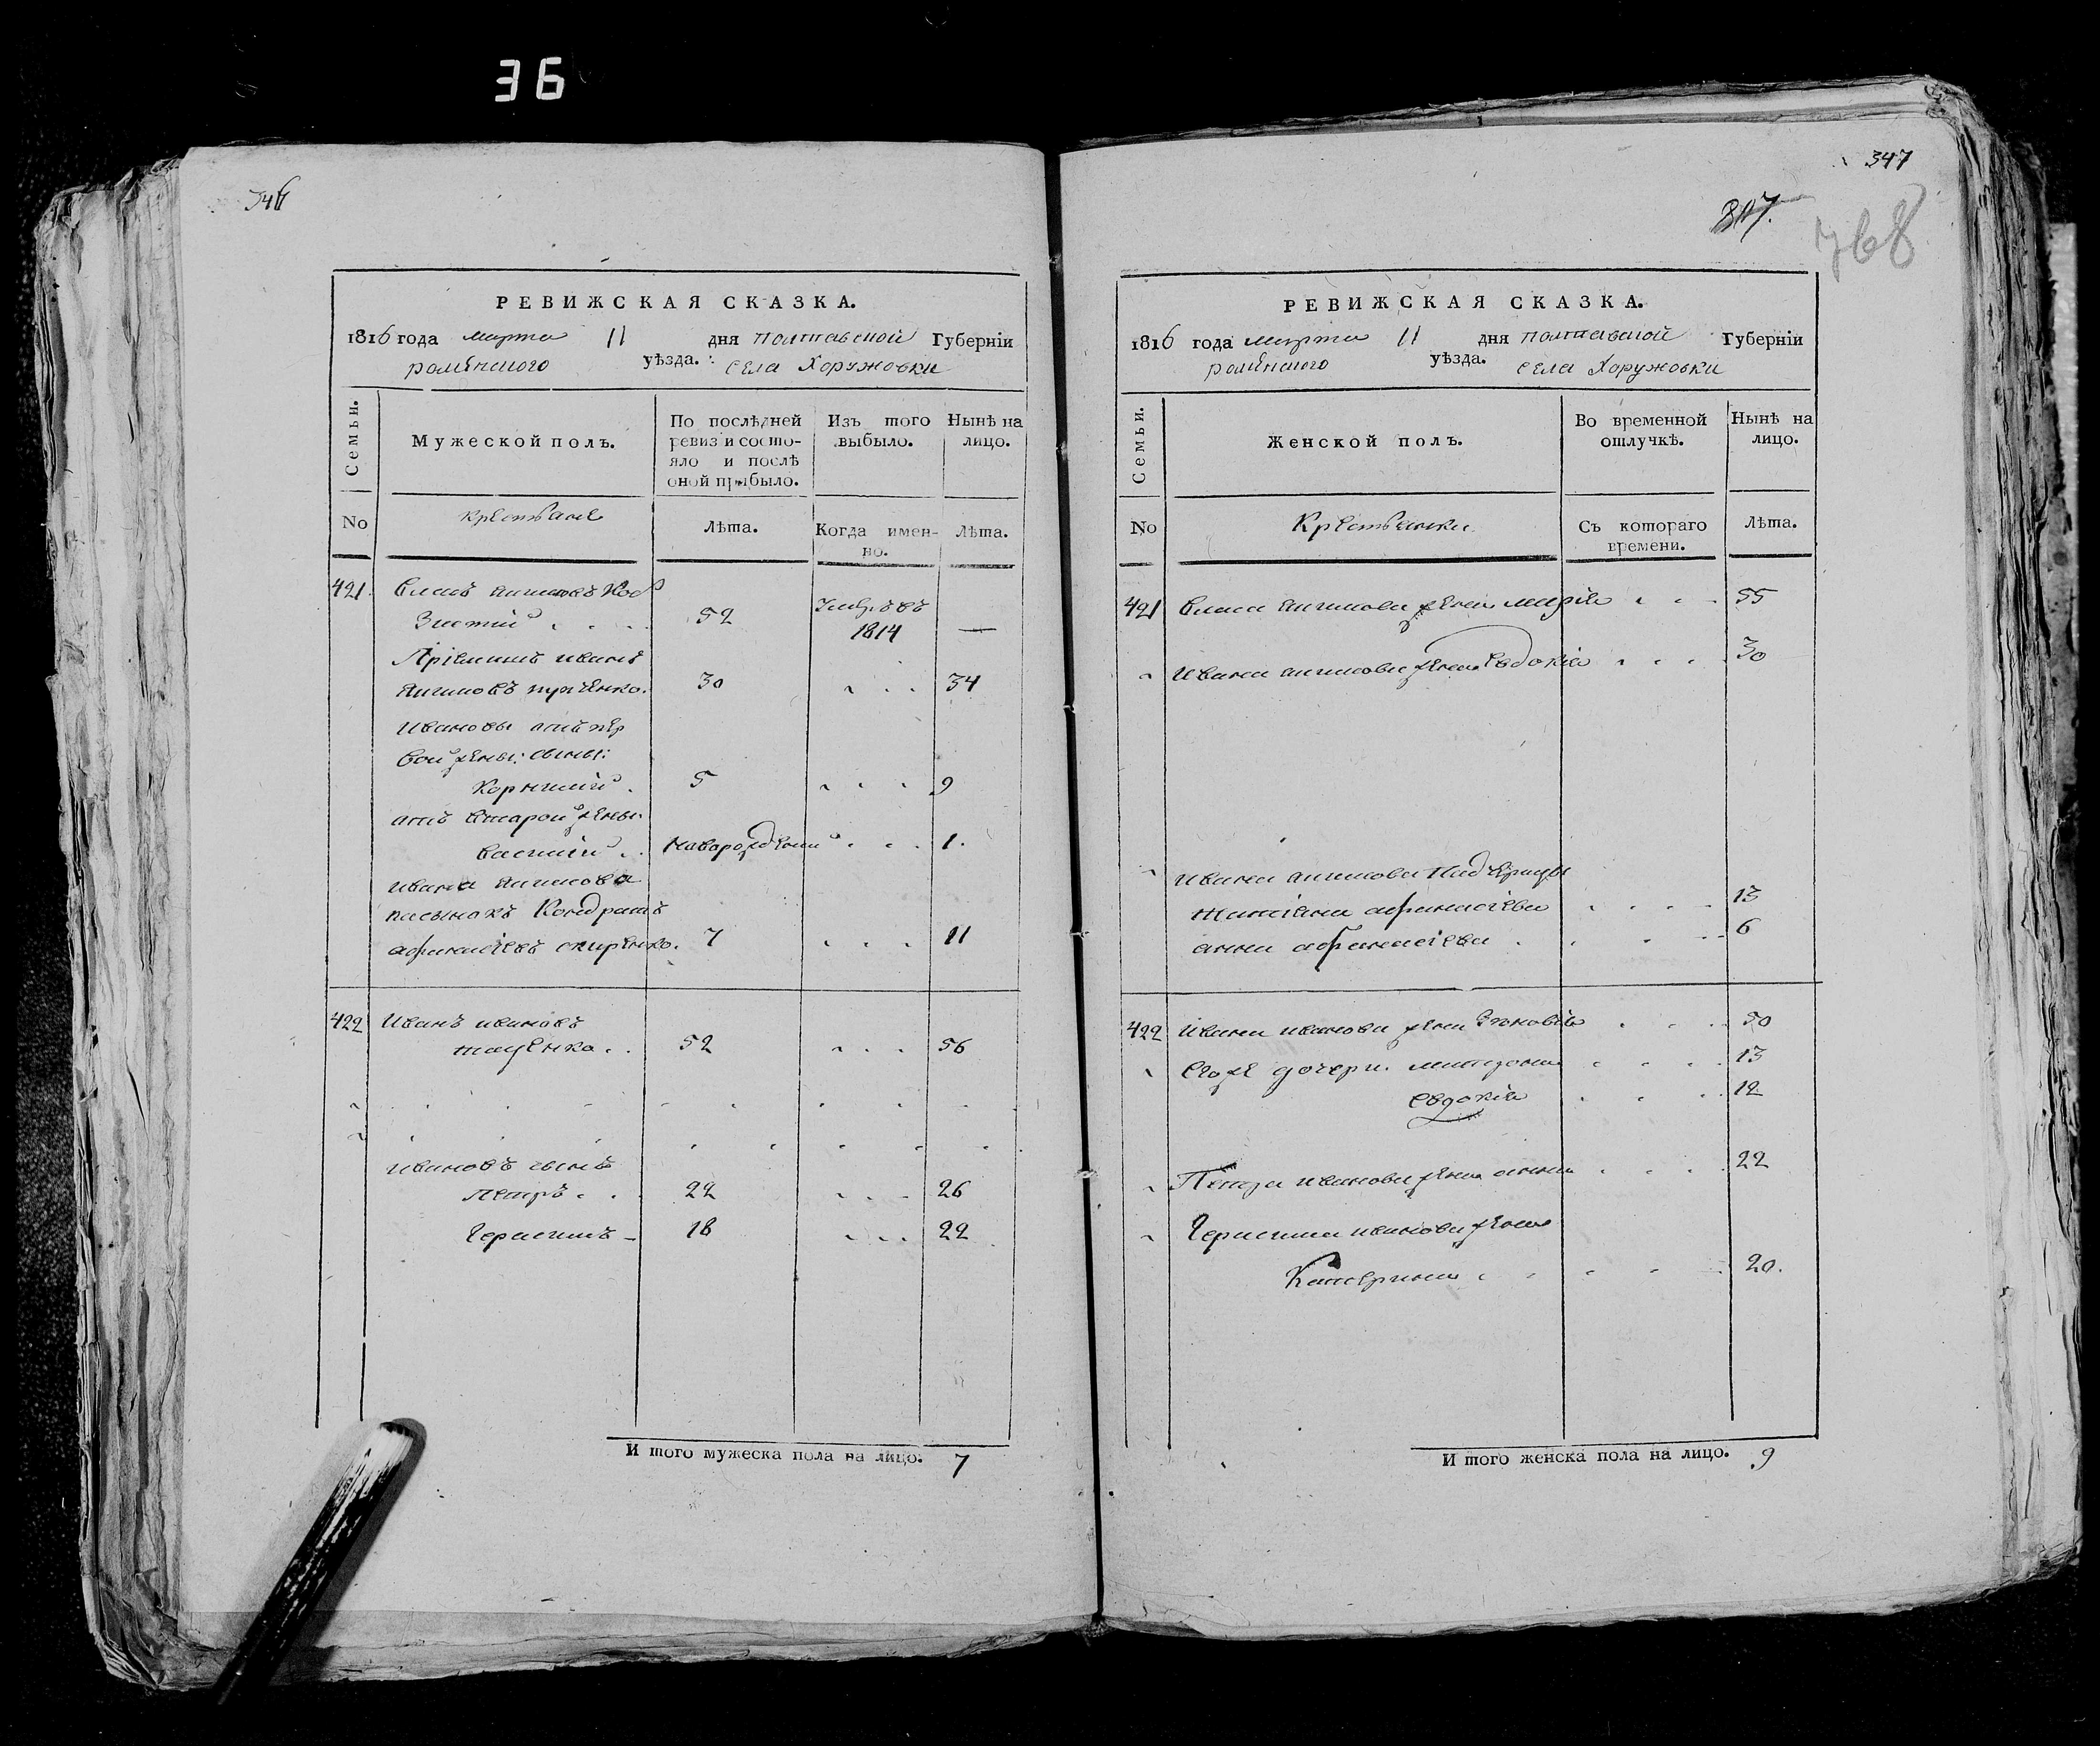 36
346
РЕВИЖСКАЯ СКАЗКА.
1816 года марта 11 дня полтавской Губернїи
роменского уѣзда. села Хоружовки
Семьи.
Мужеской полъ.
По послѣдней ревизїи состояло и послѣ оной прибыло.
Изъ того выбыло.
Нынѣ на лицо.
No
крестьяне
Лѣта.
Когда именно.
Лѣта.
421. Власъ
52 1814 —
Прїемишъ иванъ
30 34
ивановы отъ пер
вой жены: сыны:
5 9
отъ второй жены
василїй новорожденный 1.
ивана
пасынокъ Кондратъ
афанасїевъ 7 11
422 Иванъ ивановъ
52 56
ивановъ сынъ
Петръ 22 26
Герасимъ 18 22
И того мужеска пола на лицо. 7
347
807.
768
РЕВИЖСКАЯ СКАЗКА.
1816 года марта 11 дня полтавской Губернїи
роменского уѣзда. села Хоружовки
Семьи.
Женской полъ.
Во временной отлучкѣ.
Нынѣ на лицо.
No
Крестьянки
Съ котораго времени.
Лѣта.
421 власа жена марїя 55
ивана жена Евдокїя 30
ивана падчерицы
татїана афанасїева 13
анна афанасїева 6
422 ивана иванова жена Зѣновїя 50
Егоже дочери. 13
евдокїя 12
Петра иванова жена анна 22
Герасима иванова жена
Катерина 20.
И того женска пола на лицо. 9